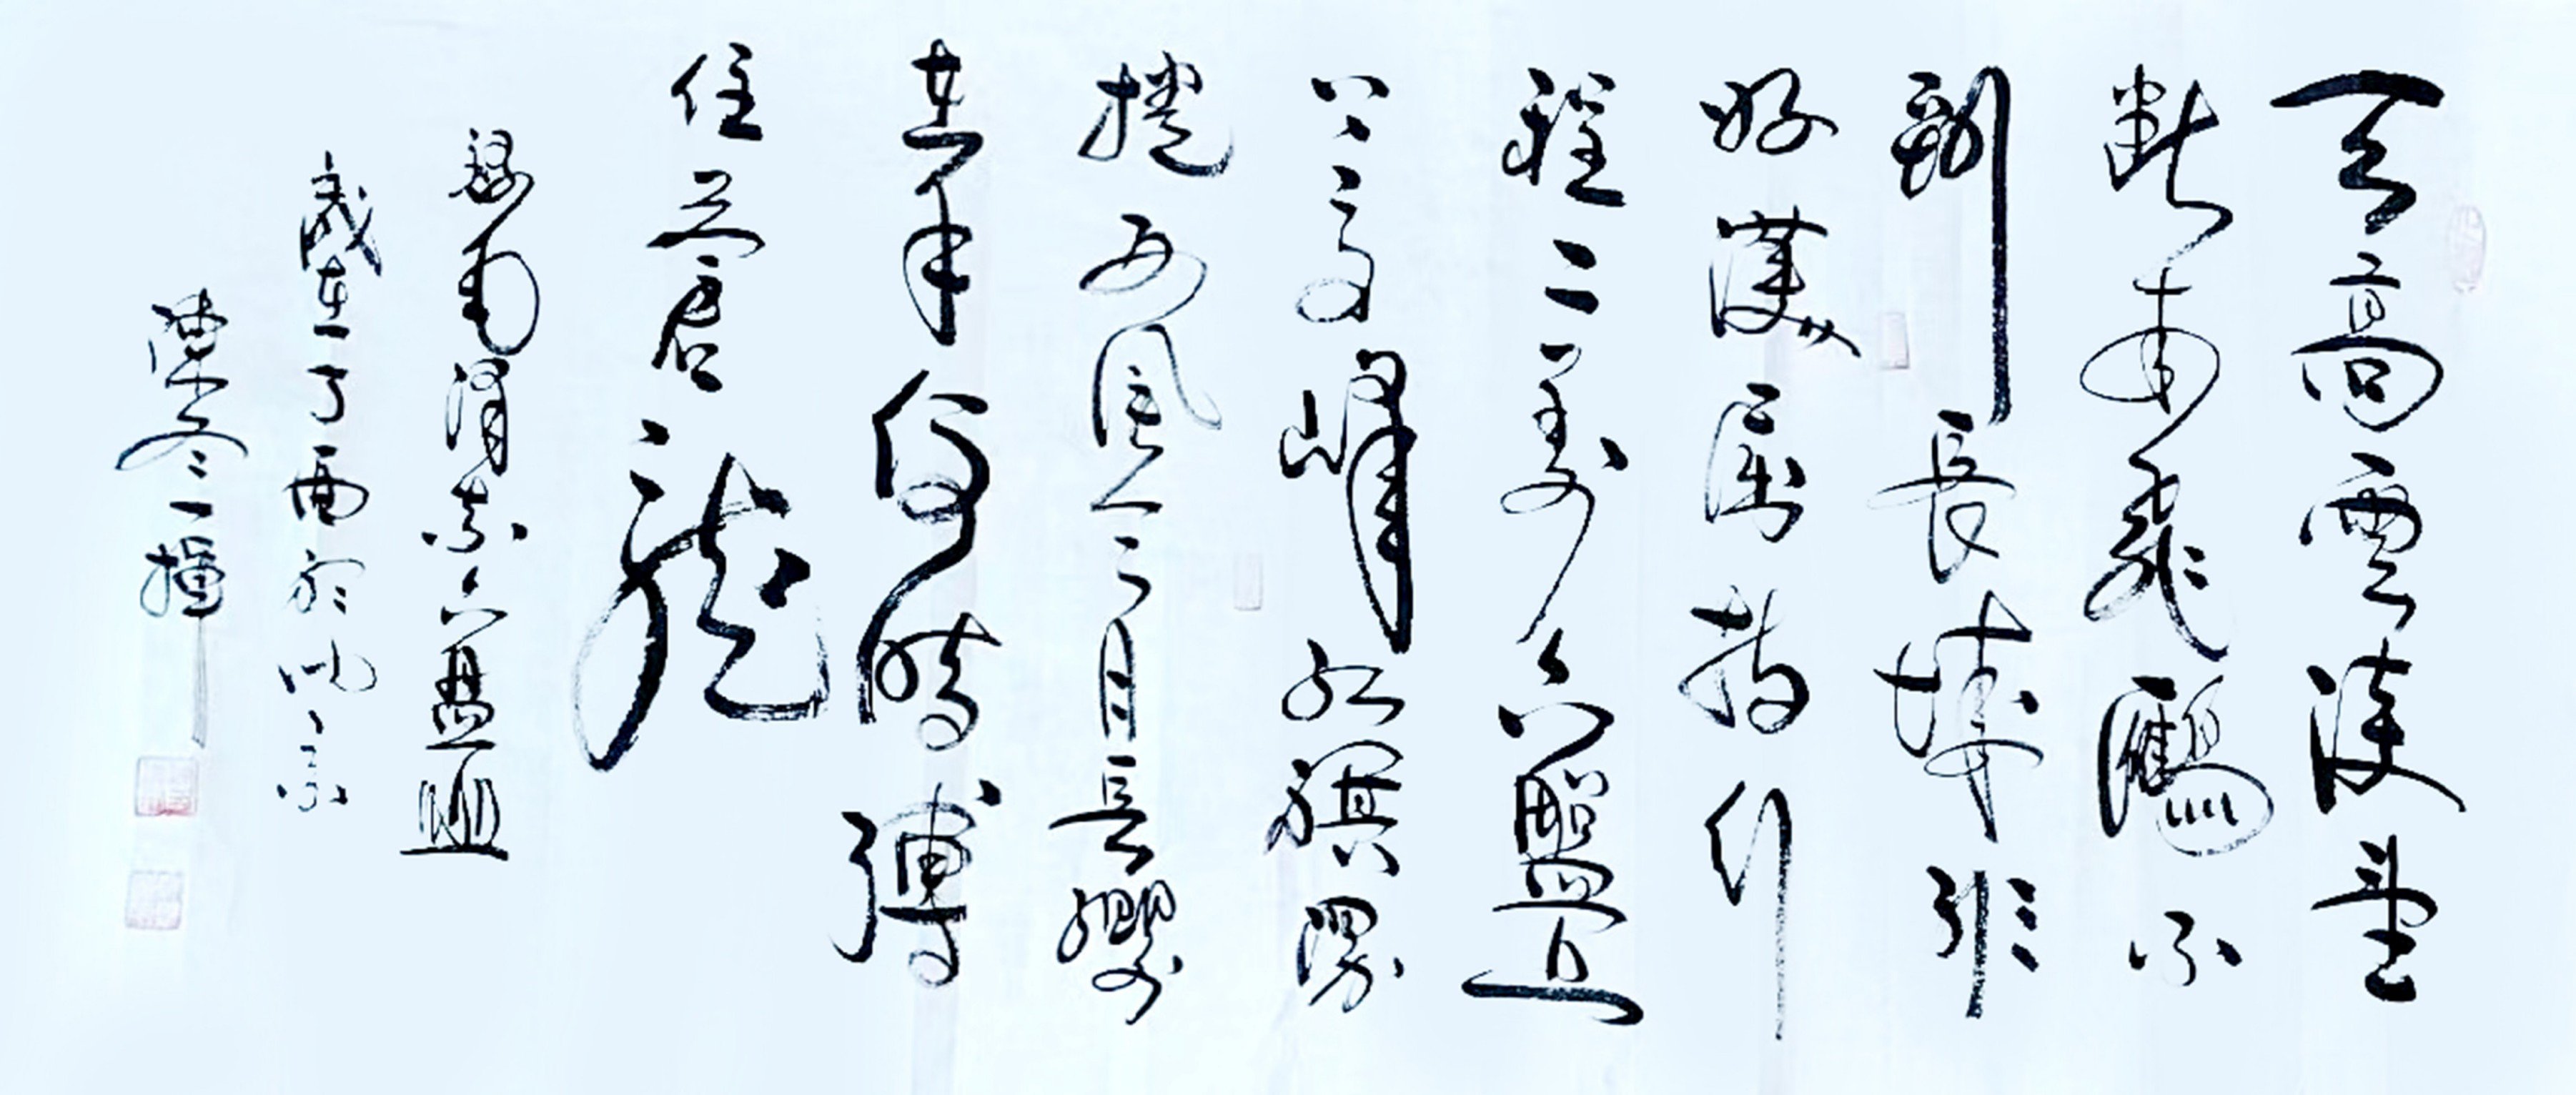 天高雲淡望
断南飛鴈不
到長城非
好漢屈指行
程二萬六盤山
上高峰紅旗漫
捲西風今日長纓
在手何時縛
住蒼龍
録毛潤東六盤山
歳在丁酉於
陳冬